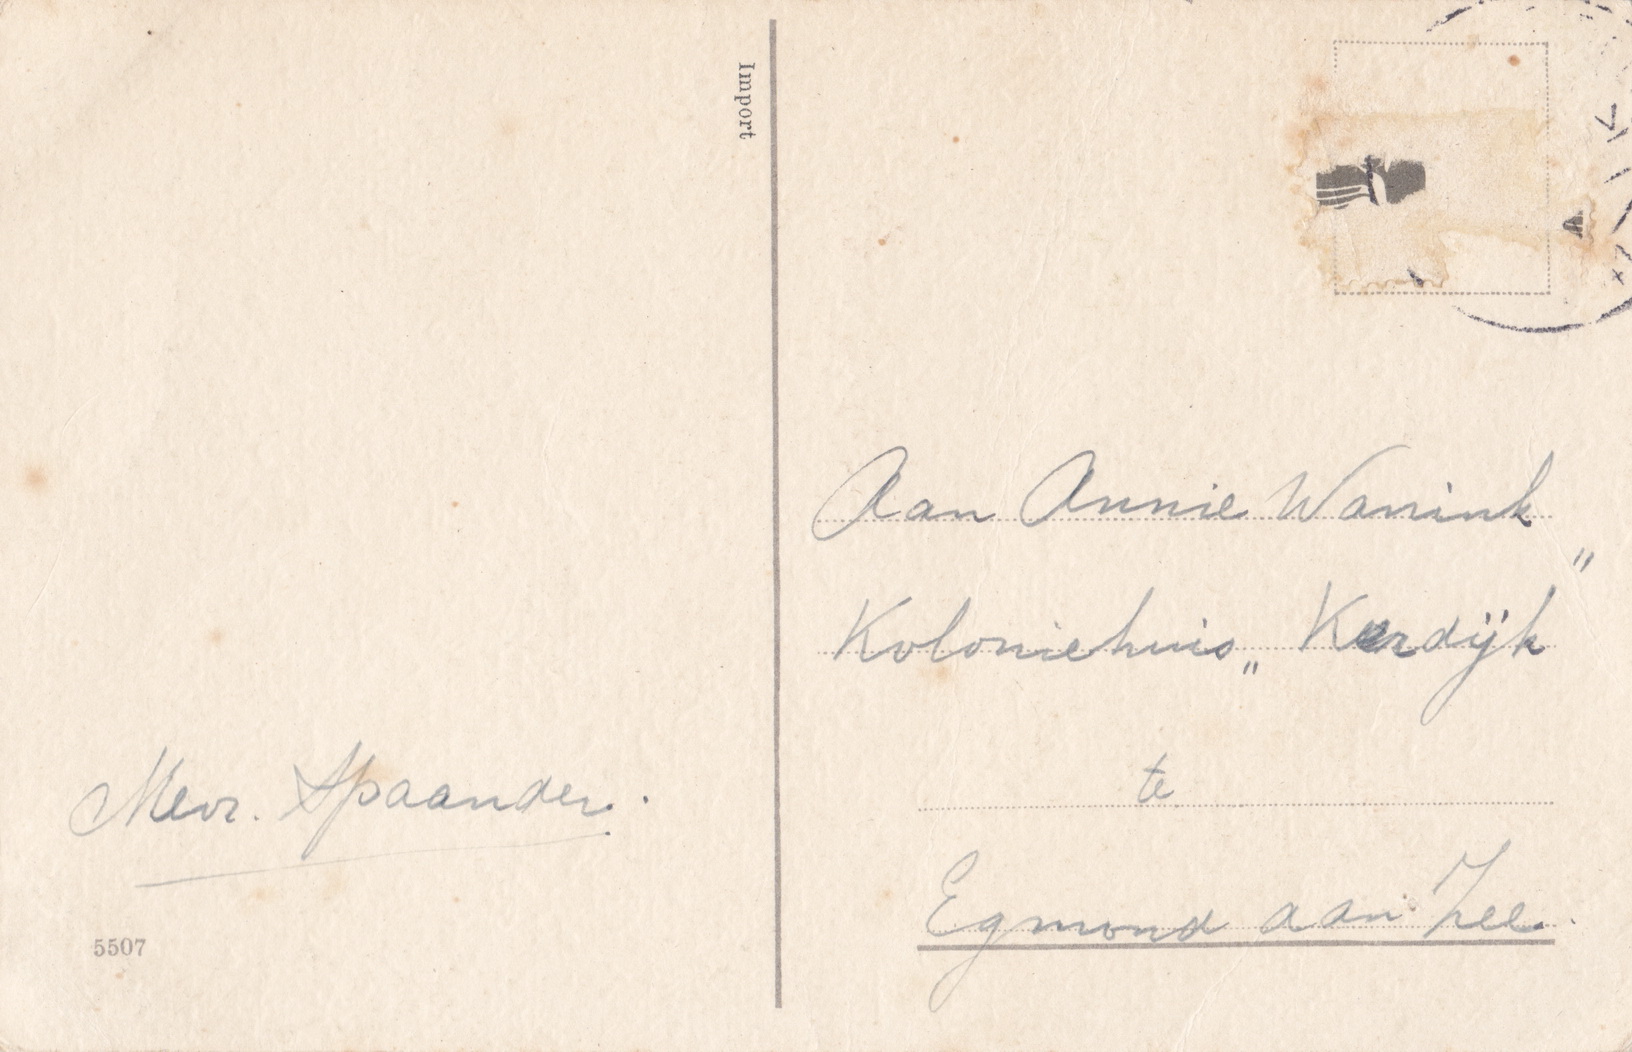 Import
Aan Annie Wanink
Koloniehuis „Kerdijk"
te
Egmond aan Zee.
Mevr. Spaander.
5507